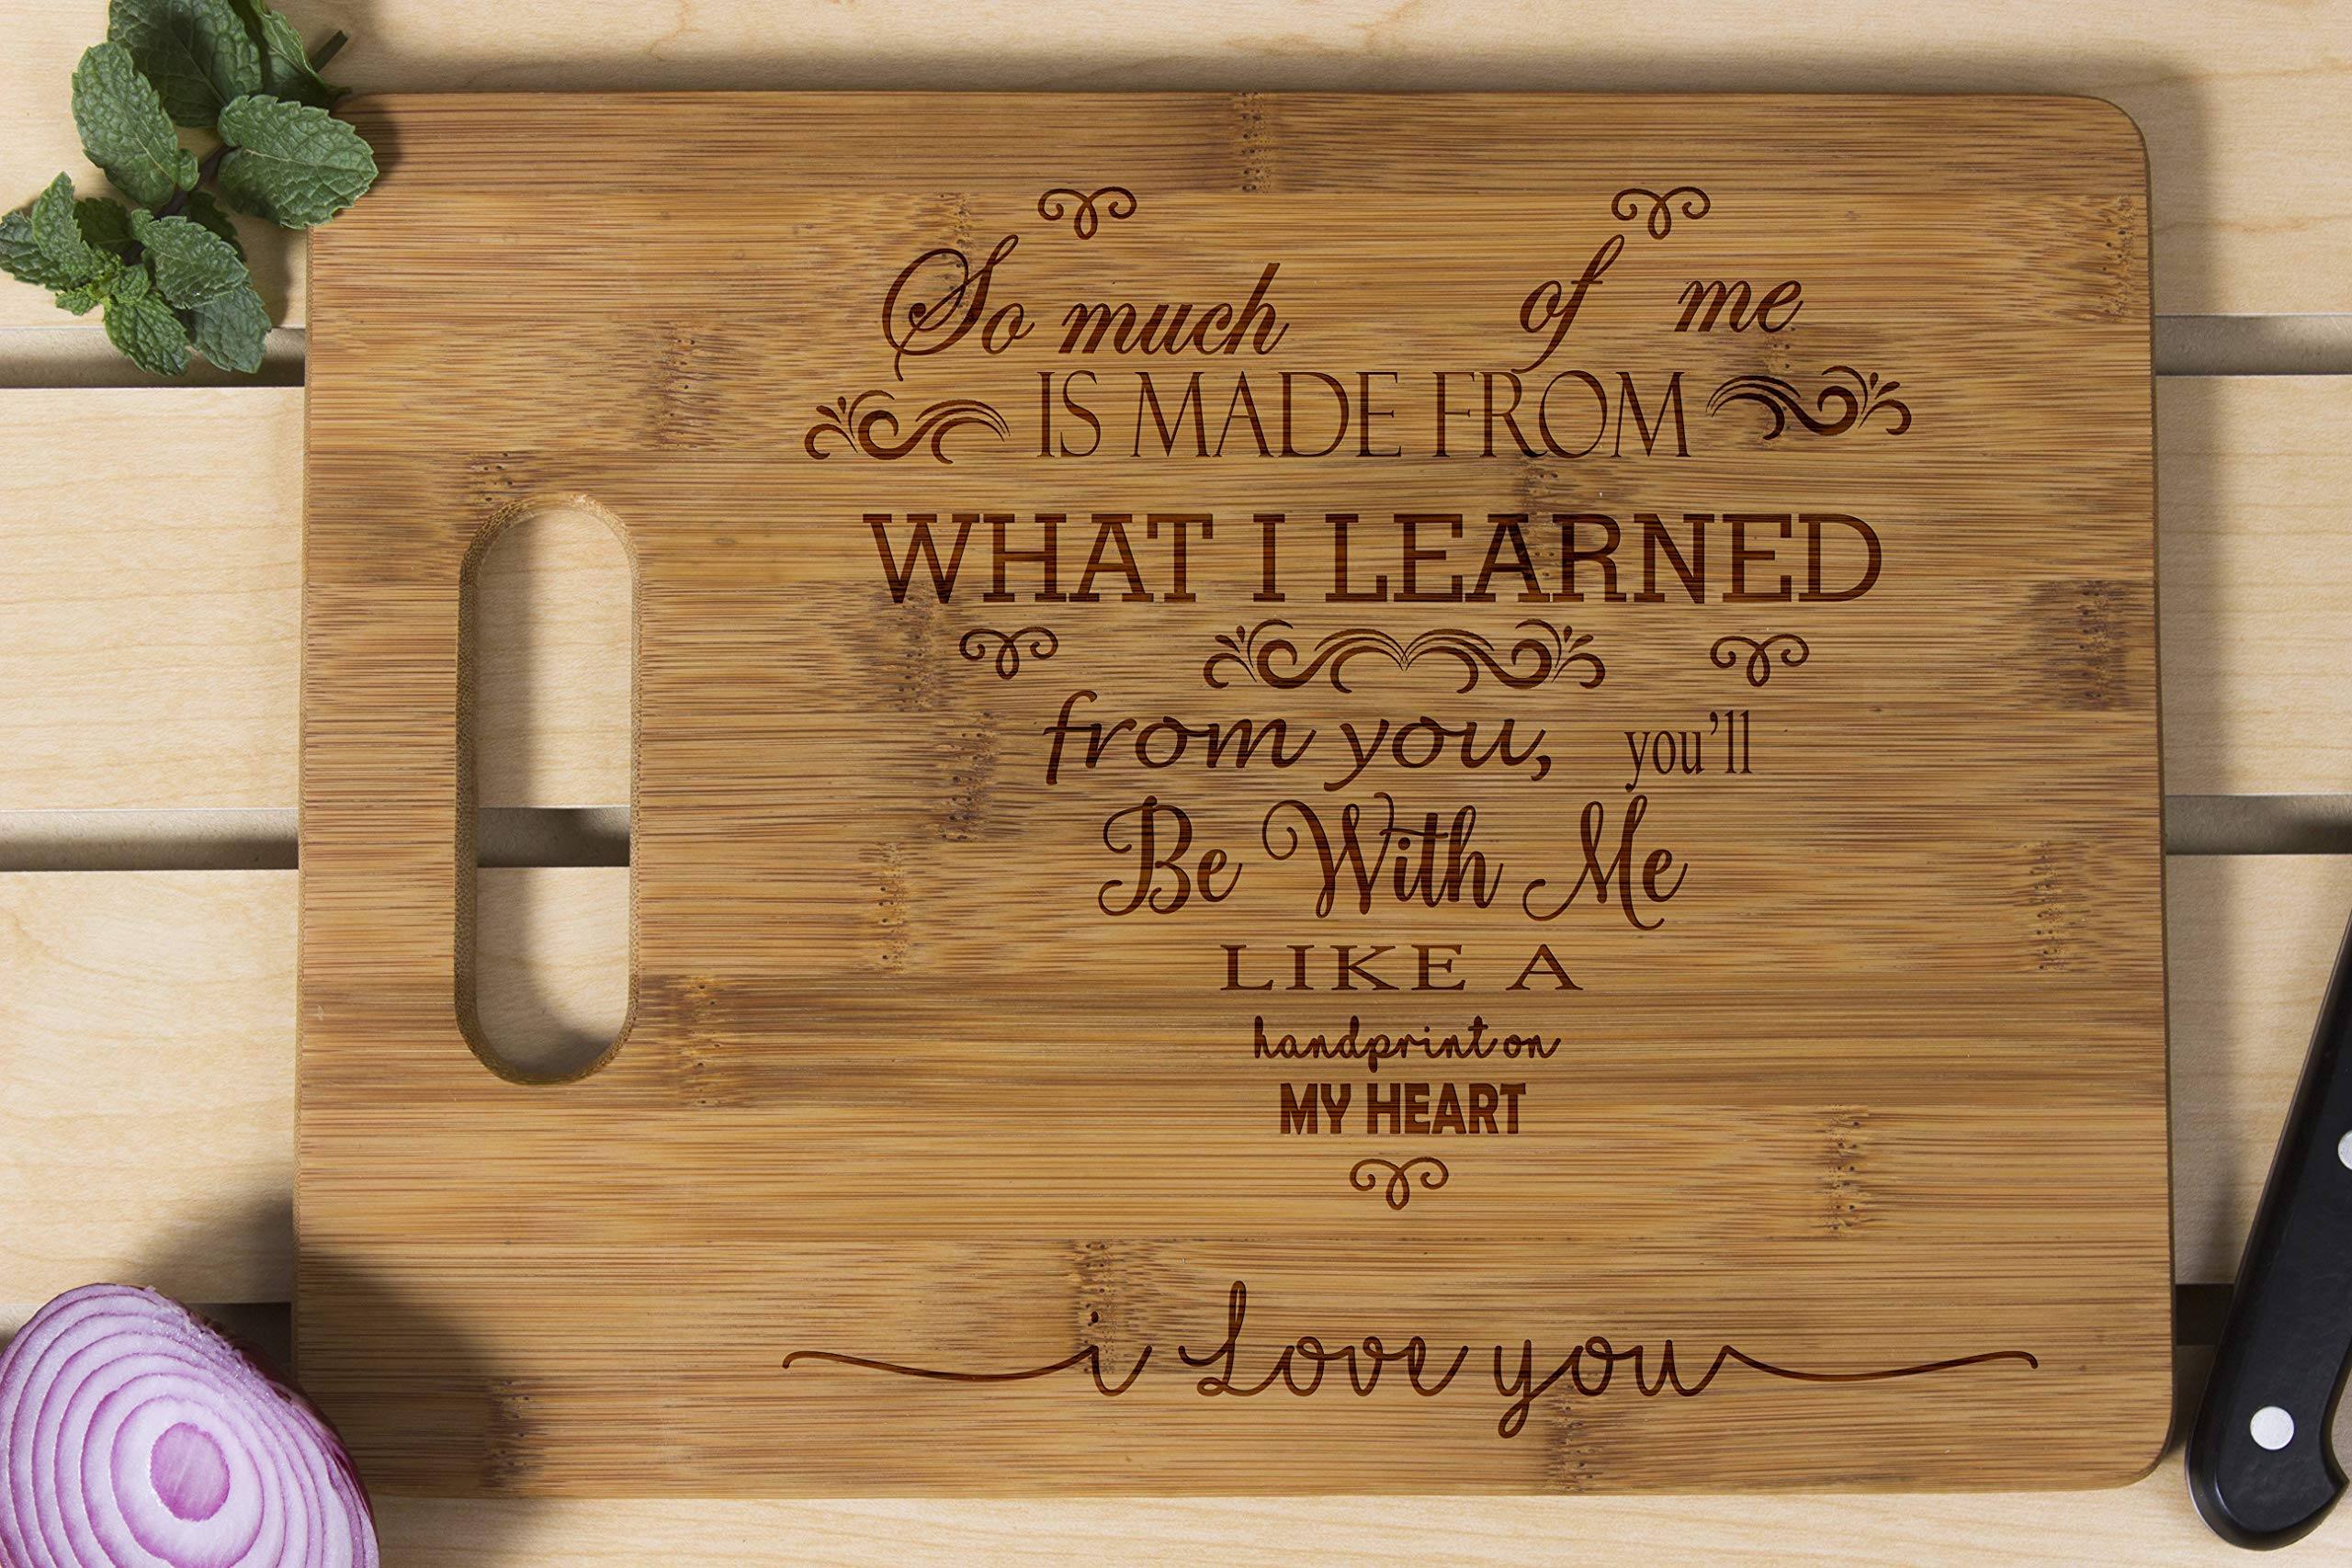 So much of me
IS MADE FROM
WHAT I LEARNED
from you, you'll
Be With Me
LIKE A
handprint on
MY HEART
i Love you